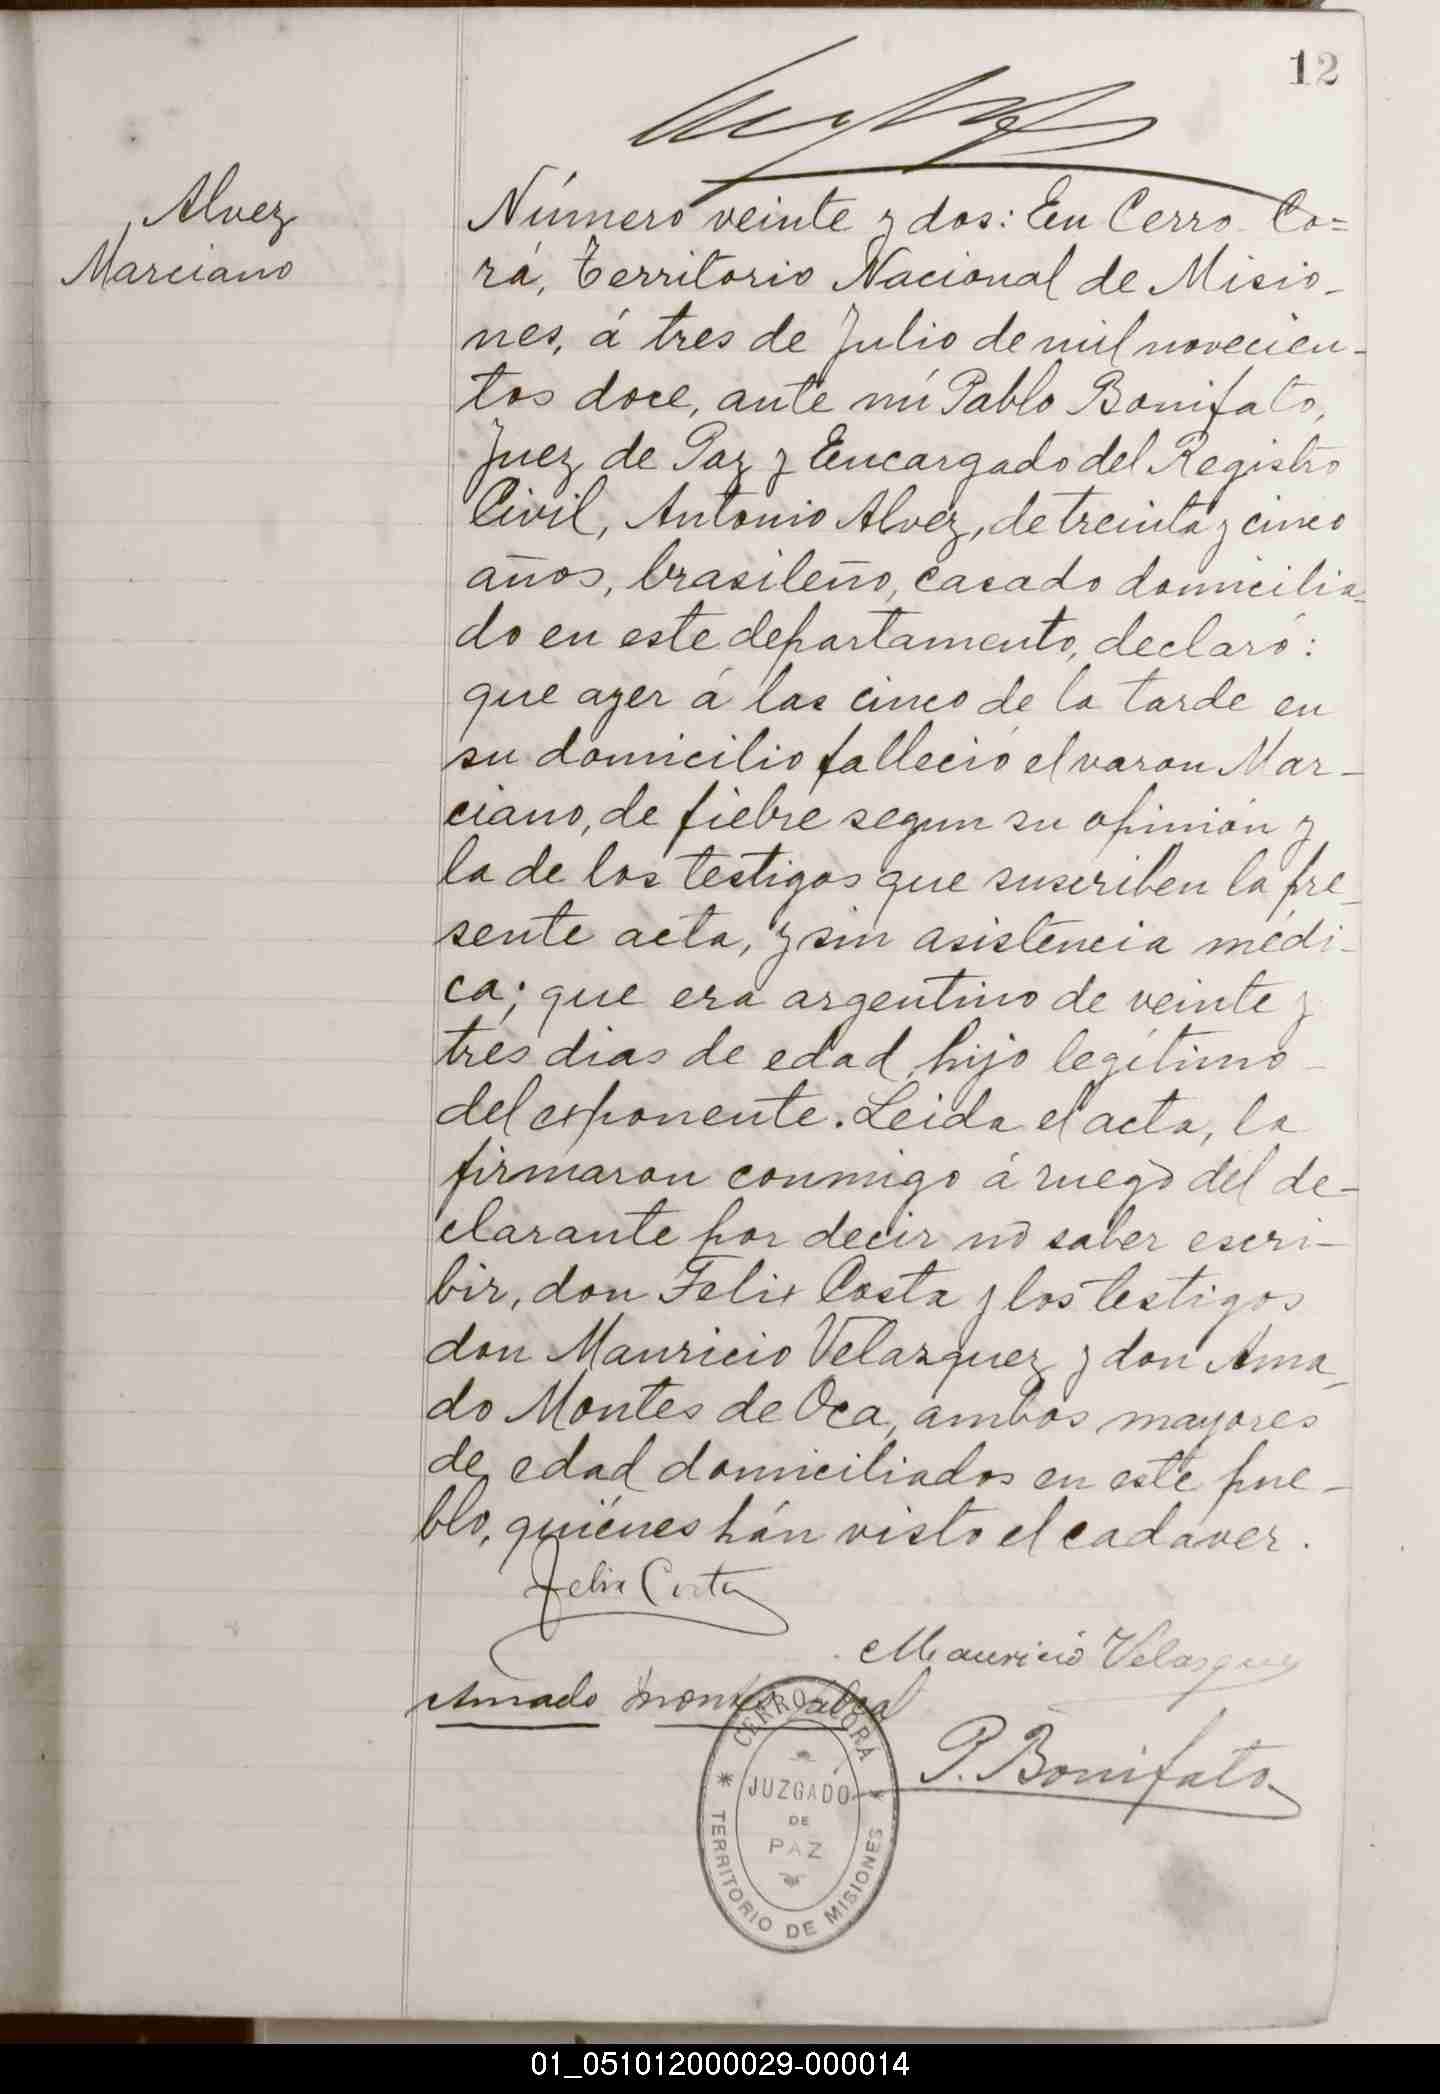 12
Alvez
Marciano
Número veinte y dos: En Cerro Co=
rá, Territorio Nacional de Misio-
nes, á tres de Julio de mil novecien-
tos doce, ante mí Pablo Bonifato,
Juez de Paz y Encargado del Registro
Civil, Antonio Alvez, de treinta y cinco
años, brasileño, casado domicilia-
do en este departamento, declaró:
que ayer á las cinco de la tarde en
su domicilio falleció el varon Mar-
ciano, de fiebre segun su opinión y
la de los testigos que suscriben la pre-
sente acta, y sin asistencia médi-
ca; que era argentino de veinte y
tres dias de edad, hijo legítimo
del exponente. Leida el acta, la
firmaron conmigo á ruego del de-
clarante por decir no saber escri-
bir, don Felix Costa y los testigos
don Mauricio Velazquez y don Ama-
do Montes de Oca, ambos mayores
de edad domiciliados en este pue-
blo, quiénes hán visto el cadaver.
Felix Costa
Mauricio Velasquez
Amado montes
P. Bonifato
CERRO CORÁ
JUZGADO
DE
PAZ
TERRITORIO DE MISIONES
01_051012000029-000014